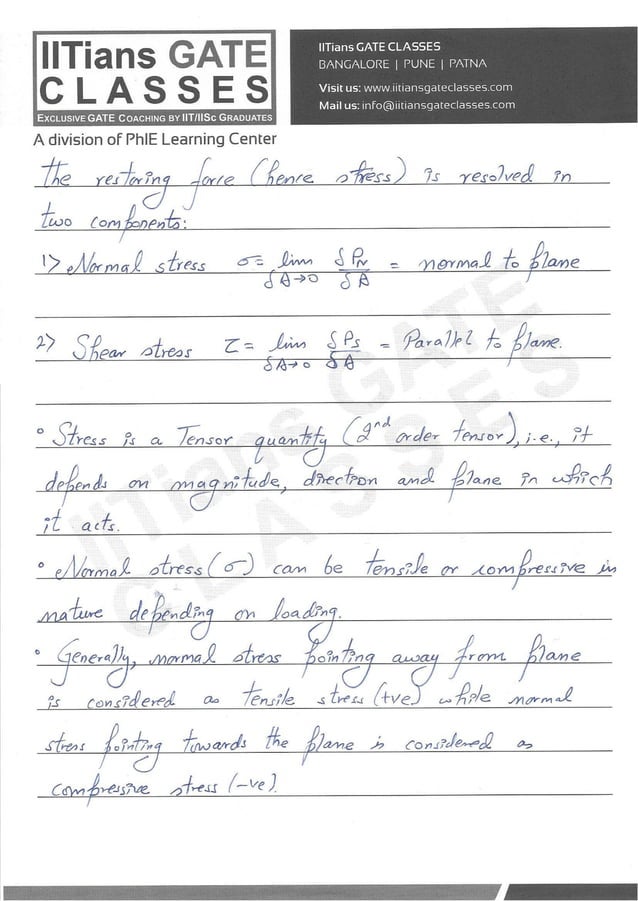 IITians GATE
CLASSES
EXCLUSIVE GATE COACHING BY IIT/IISc GRADUATES
A division of PhIE Learning Center
IITians GATE CLASSES
BANGALORE | PUNE | PATNA
Visit us: www.iitiansgateclasses.com
Mail us: info@iitiansgateclasses.com
The restoring force (hence stress) is resolved in
two components:
1> Normal stress σ = lim δA→0 δPN/δA = normal to plane
2> Shear stress τ = lim δA→0 δPs/δA = Parallel to plane.
° Stress is a Tensor quantity (2nd order tensor), i.e., it
depends on magnitude, direction and plane in which
it acts.
° Normal stress (σ) can be tensile or compressive in
nature depending on loading.
° Generally, normal stress pointing away from plane
is considered as tensile stress (+ve) while normal
stress pointing towards the plane is considered as
compressive stress (-ve).
IITians GATE
CLASSES